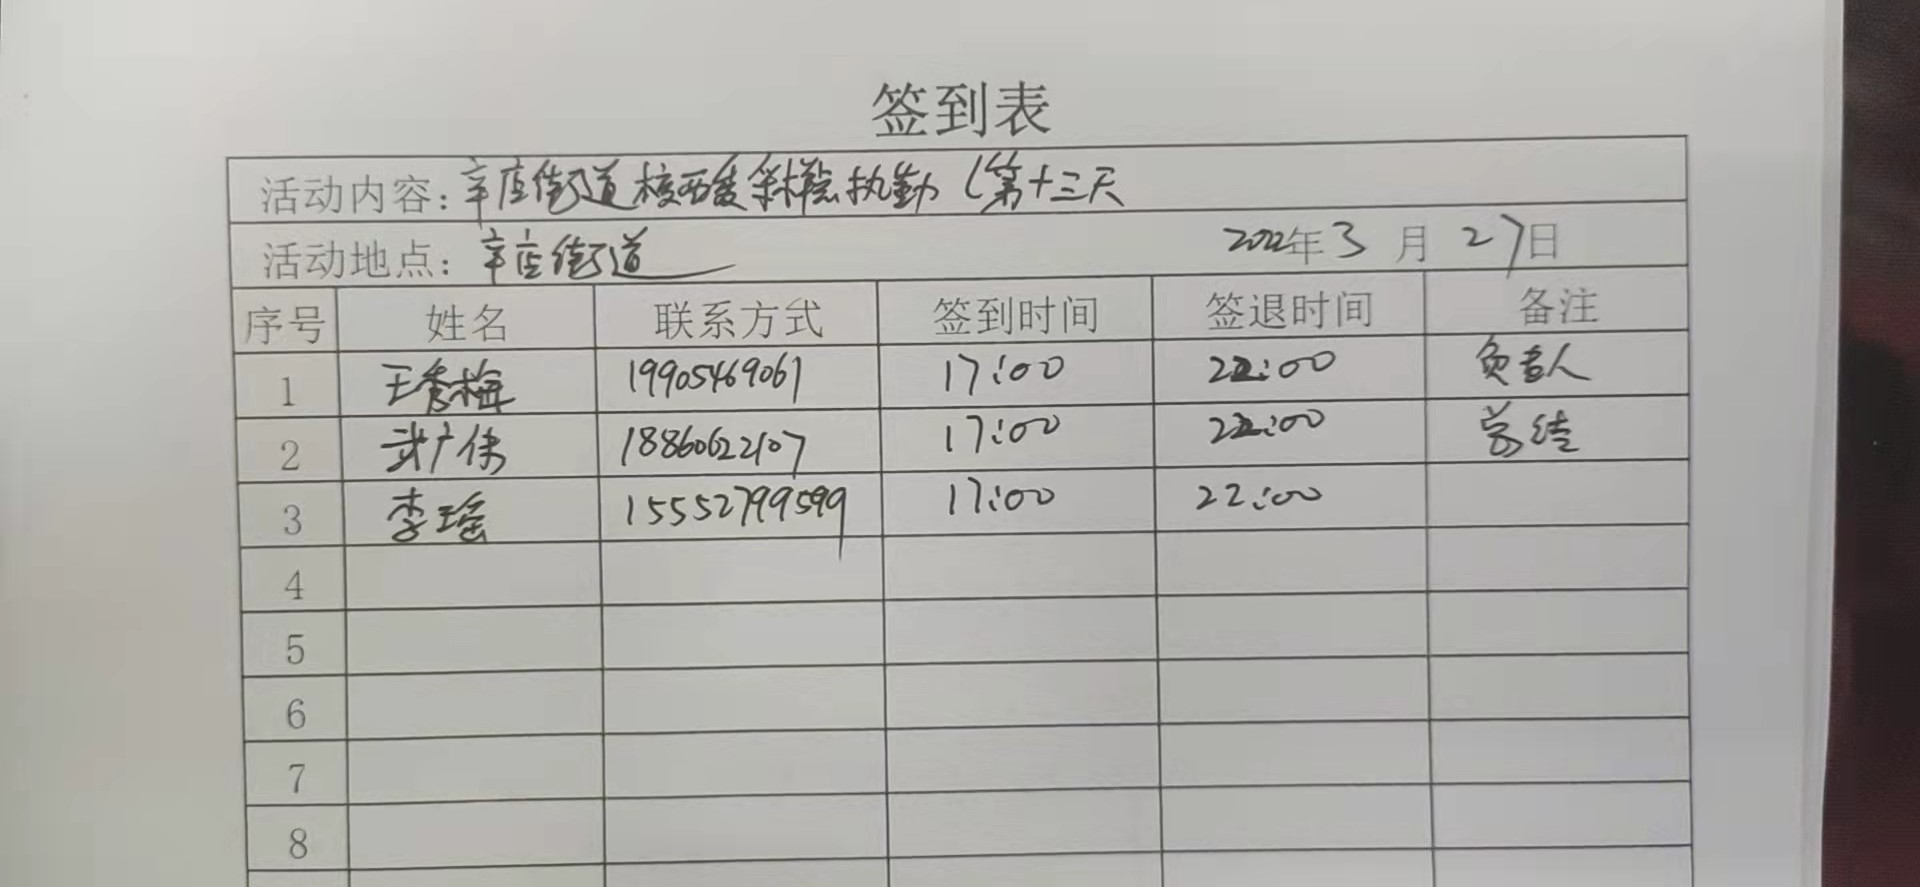 签到表
活动内容：辛店街道核酸采样点执勤（第十三天
活动地点：辛店街道 2022年3月27日
序号 姓名 联系方式 签到时间 签退时间 备注
1 王秀梅 19905469061 17:00 22:00 负责人
2 武广伟 18860622107 17:00 22:00 总结
3 李瑶 15552799599 17:00 22:00
4
5
6
7
8